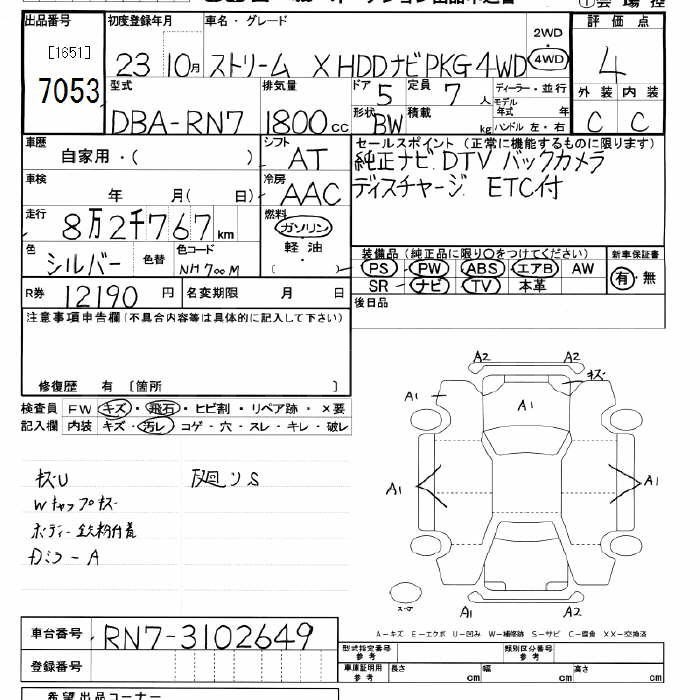 出品番号
[1651]
7053
初度登録年月
23 10月
車名・グレード
ストリーム X HDDナビPKG 4WD
2WD
4WD
評価点
4
外装 内装
C C
型式
DBA-RN7
排気量
1800cc
ドア 5
定員 7人
形状 BW
積載 kg
ディーラー・並行
モデル年式 年
ハンドル 左・右
車歴
自家用・( )
シフト
AT
車検
年 月( 日)
冷房
AAC
走行
8万2千767km
燃料
ガソリン
軽油
( )
色
シルバー
色替
色コード
NH700M
R券 12190円
名変期限 月 日
セールスポイント (正常に機能するものに限ります)
純正ナビ DTV バックカメラ
ディスチャージ ETC付
装備品(純正品に限り○をつけてください)
PS PW ABS エアB AW
SR ナビ TV 本革
新車保証書
有・無
後日品
注意事項申告欄(不具合内容等は具体的に記入して下さい)
修復歴 有 〔箇所 〕
検査員 FW キズ・飛石・ヒビ割・リペア跡・×要
記入欄 内装 キズ・汚レ・コゲ・穴・スレ・キレ・破レ
キズU
Wキャップキズ
ボディー鉄粉付着
下廻りS
A2 A2
キズ
A1 A1
A1 A1
A1 A2
A-キズ E-エクボ U-凹み W-補修跡 S-サビ C-腐食 XX-交換済
車台番号 RN7-3102649
登録番号
型式指定番号
参考
類別区分番号
参考
車庫証明用
参考
長さ cm
幅 cm
高さ cm
希望出品コーナー